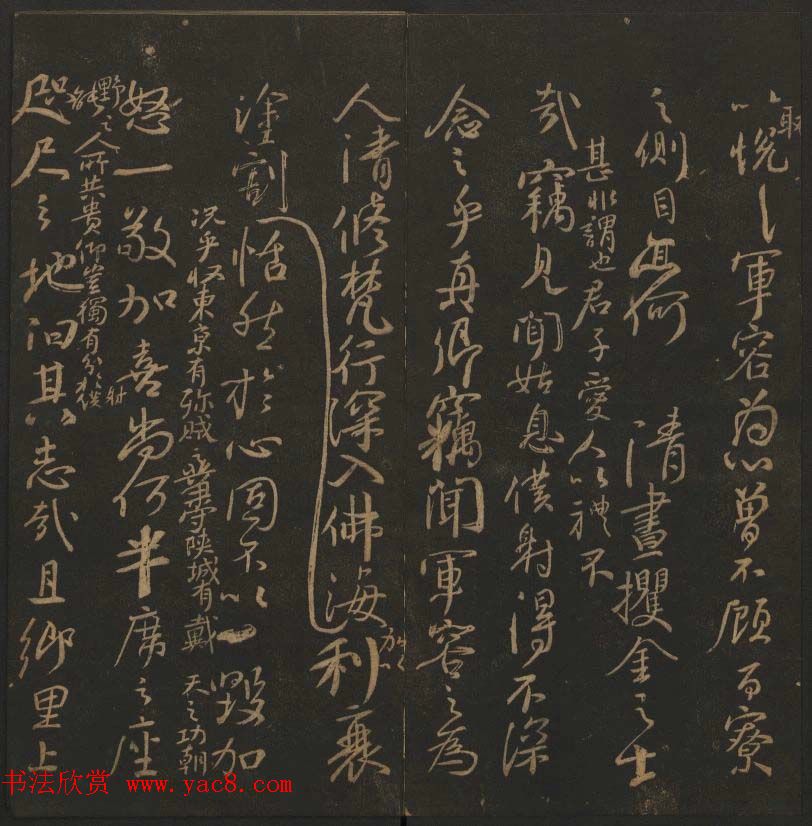 取以悅軍容為心曾不顧百寮
之側目亦何清晝攫金之士
甚非謂也君子愛人以禮不
哉竊見聞姑息僕射得不深
念之乎真卿竊聞軍容之為
人清修梵行深入佛海加以利衰
塗割恬然於心固不以一毀加
況乎收東京有殄賊之業守陝城有戴天之功朝
怒一敬加喜尚何半席之座
野之人所共貴仰豈獨有分於僕射
咫尺之地能汩其志哉且鄉里上
书法欣赏 www.yac8.com